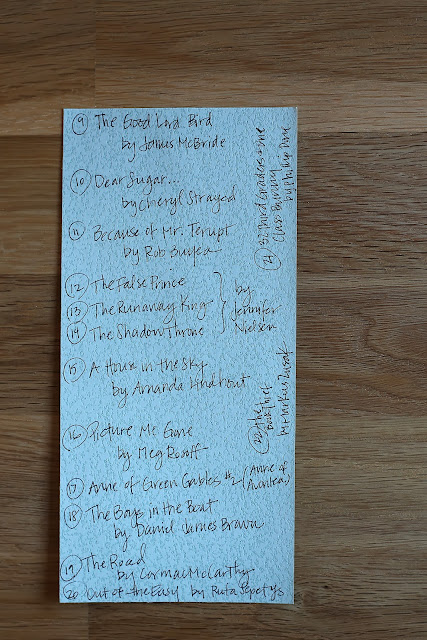 ⑨ The Good Lord Bird
by James McBride
⑩ Dear Sugar...
by Cheryl Strayed
⑪ Because of Mr. Terupt
by Rob Buyea
⑫ The False Prince
⑬ The Runaway King
⑭ The Shadow Throne
by
Jennifer
Nielsen
⑮ A House in the Sky
by Amanda Lindhout
⑯ Picture Me Gone
by Meg Rosoff
⑰ Anne of Green Gables #2 (Anne of
Avonlea)
⑱ The Boys in the Boat
by Daniel James Brown
⑲ The Road
by Cormac McCarthy
⑳ Out of the Easy by Ruta Sepetys
㉑ 32 Third Graders + One
Class Bunny
by Philip
The
Book Thief
by Markus Zusak